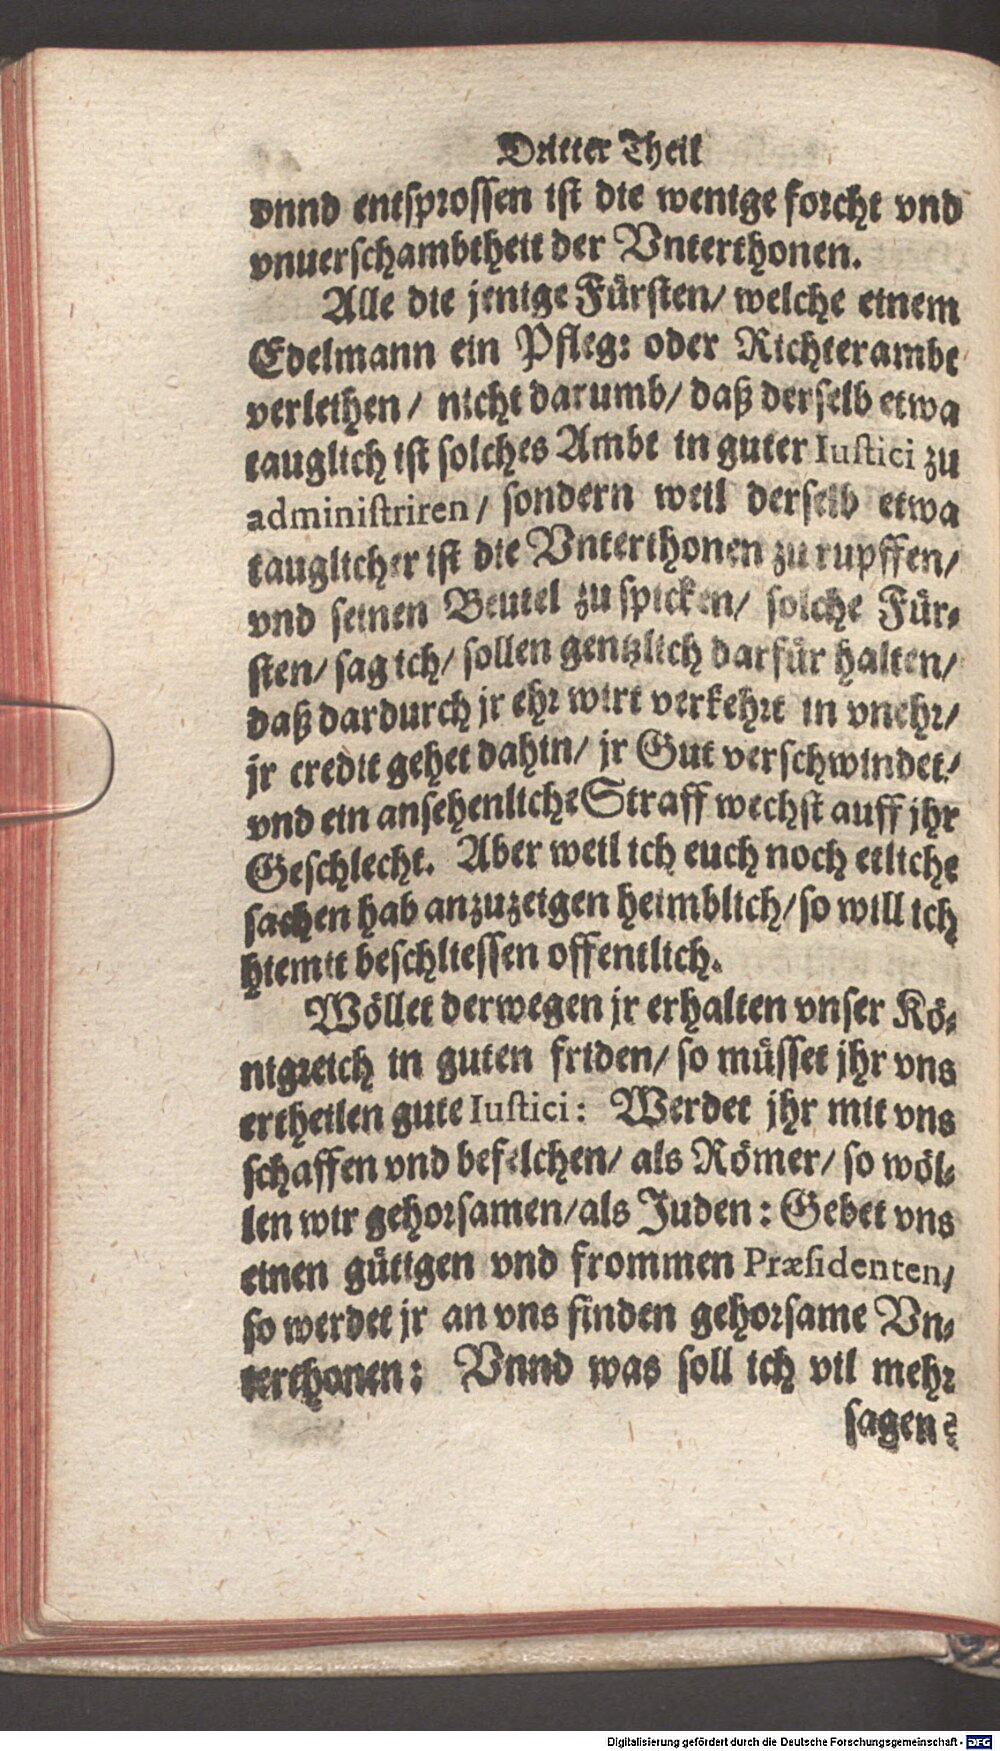 Dritter Theil
vnnd entsprossen ist die wenige forcht vnd
vnuerschambtheit der Vnterthonen.
Alle die jenige Fürsten/ welche einem
Edelmann ein Pfleg: oder Richterambt
verleihen/ nicht darumb/ daß derselb etwa
tauglich ist solches Ambt in guter Iustici zu
administriren/ sondern weil derselb etwa
tauglicher ist die Vnterthonen zu rupffen/
vnd seinen Beutel zu spicken/ solche Für-
sten/ sag ich/ sollen gentzlich darfür halten/
daß dardurch jr ehr wirt verkehrt in vnehr/
jr credit gehet dahin/ jr Gut verschwindet/
vnd ein ansehenliche Straff wechst auff jhr
Geschlecht. Aber weil ich euch noch etliche
sachen hab anzuzeigen heimblich/ so will ich
hiemit beschliessen offentlich.
Wöllet derwegen jr erhalten vnser Kö-
nigreich in guten friden/ so müsset jhr vns
ertheilen gute Iustici: Werdet jhr mit vns
schaffen vnd befelchen/ als Römer/ so wöl-
len wir gehorsamen/ als Juden: Gebet vns
einen gütigen vnd frommen Præsidenten/
so werdet jr an vns finden gehorsame Vn-
terthonen: Vnnd was soll ich vil mehr
sagen?
Digitalisierung gefördert durch die Deutsche Forschungsgemeinschaft - DFG